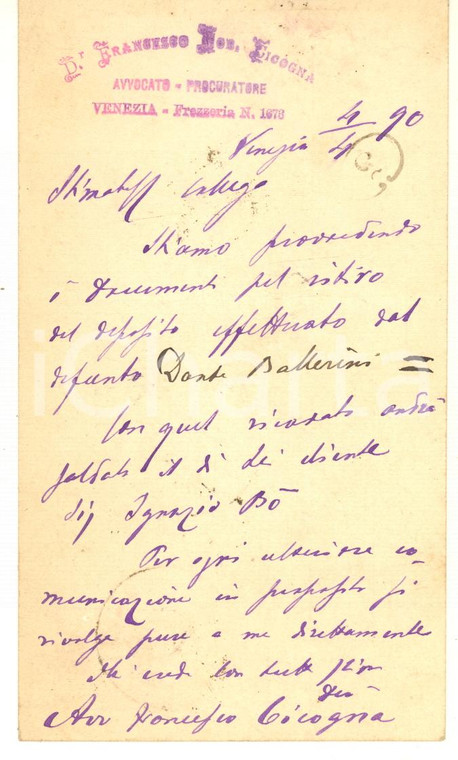 Dr. Francesco Nob. Cicogna
AVVOCATO - PROCURATORE
VENEZIA - Frezzeria N. 1676
Venezia 4/4 90
Collega
Stiamo provvedendo
i documenti pel ritiro
del deposito effettuato dal
defunto Dante Ballerini =
Con quel ricavato andrà
saldato il di Lei cliente
Sig Ignazio Bō
Per ogni ulteriore co-
municazione in proposito si
rivolga pure a me direttamente
Mi creda con tutta stima
Avv Francesco Cicogna
iCharta